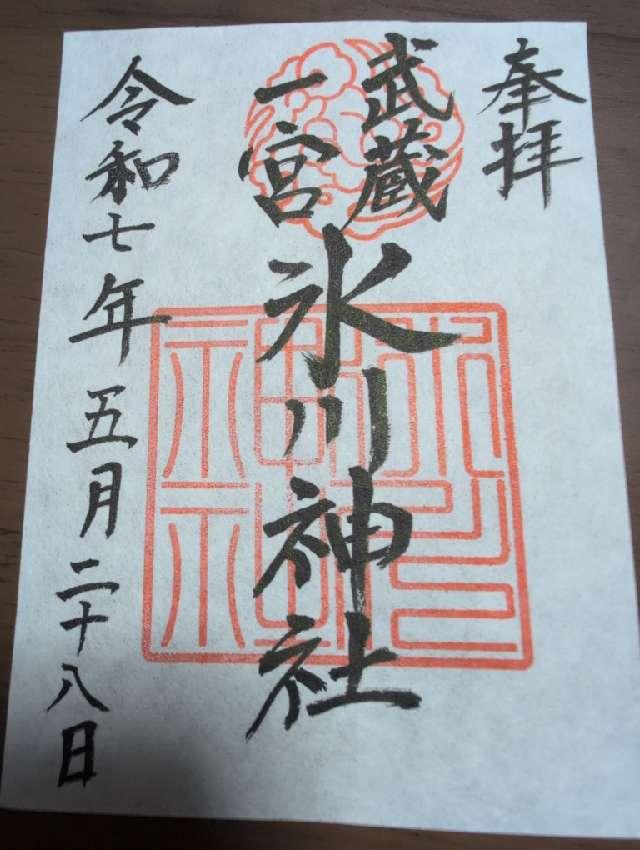 奉拝
武蔵
一宮
氷川神社
令和七年五月二十八日